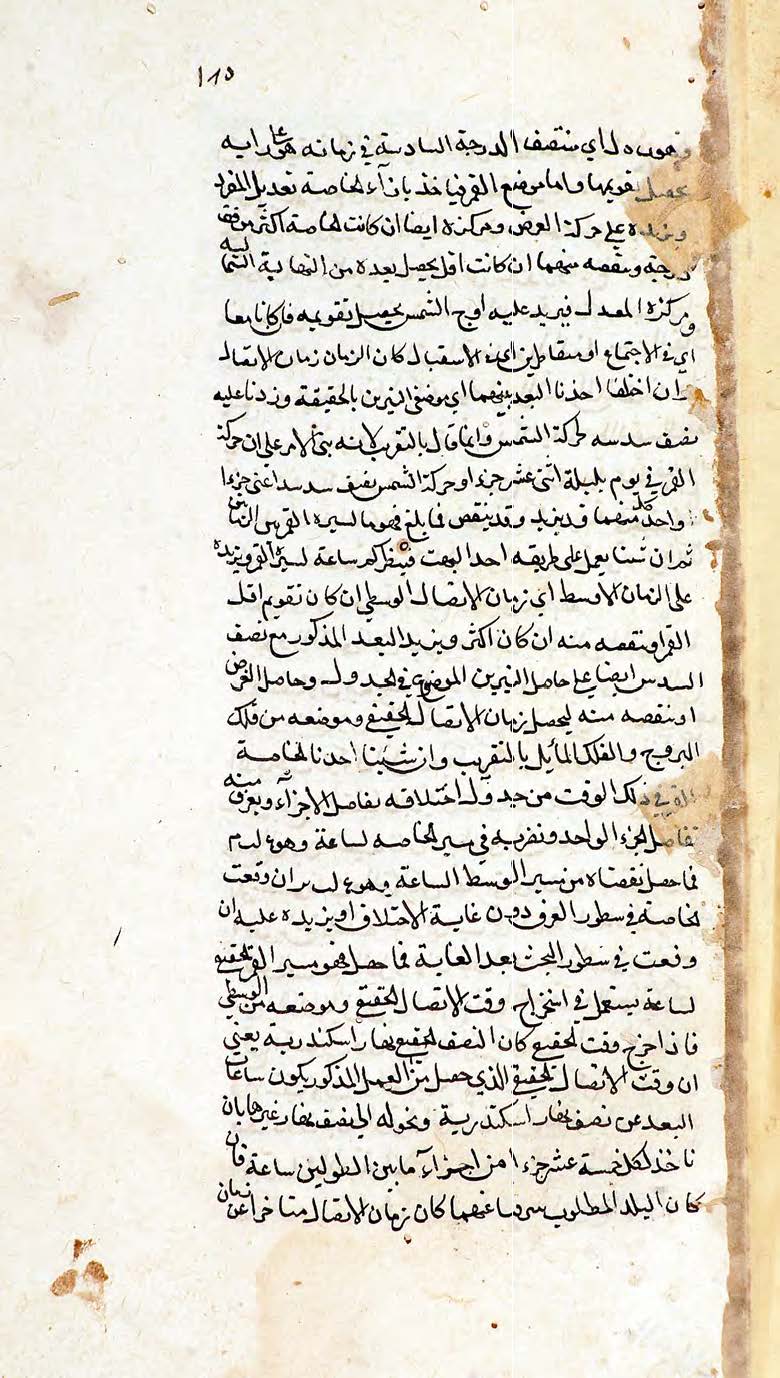 ١٨٥
اي منتصف الدرجة السادسة في زمانه
يحصل تقويمها واما موضع القمر فياخذ بازآء الخاصة تعديل المفرد
ويزيده على حركة العرض ومركزه ايضا ان كانت الخاصة اكثر من قف
درجة وينقصه منهما ان كانت اقل يحصل بعده من النهاية الشمالية
ومركزه المعدل فيزيد عليه اوج الشمس يحصل تقويمه فان كانا معا
اي في الاجتماع او متقاطرين اي في الاستقبال كان الزمان زمان الاتصال
وان اختلفا اخذنا البعد بينهما اي موضعي النيرين بالحقيقة وزدنا عليه
نصف سدسه لحركة الشمس وانما قال بالتقريب لانه بنى الامر على ان حركة
القمر في يوم بليلة اثنى عشر جزءا وحركة الشمس نصف سدسها اعني جزءا
واحدا كل منهما قد يزيد وقد ينقص فما بلغ فهو ما لسيره القمر بين الزمانين
ثم ان شئنا يعمل على طريقه احد البهت فينظر كم ساعة لسيره القمر ويزيده
على الزمان الاوسط اي زمان الاتصال الوسطي ان كان تقويم اقل
القمر او ننقصه منه ان كان اكثر ويزيد البعد المذكور مع نصف
السدس ايضا على حاصل النيرين الموضوع في الجدول وحاصل العرض
او ننقصه منه ليحصل زمان الاتصال الحقيقي وموضعه من فلك
البروج والفلك المايل بالتقريب وان شئنا اخذنا الخاصة
في ذلك الوقت من جدول اختلافه تفاضل الاجزآء ويعرف منه
تفاضل الجزء الواحد ونضربه في سير الخاصه لساعة وهو
فما حصل نقصناه من سير الوسط الساعة وهو ان وقعت
الخاصة في سطور الفرق دون غاية الاختلاف او يزيده عليه ان
وقعت في سطور البحث بعد الغاية فما حصل فهو مسير القمر الحقيقي
لساعة يستعمل في استخراج وقت الاتصال الحقيقي وموضعه من الوسطي
فاذا خرج وقت الحقيقي كان النصف الحقيقي نهار اسكندرية يعني
ان وقت الاتصال الحقيقي الذي حصل من العمل المذكور يكون ساعات
البعد عن نصف نهار اسكندرية ونحوله الى نصف نهار غيرها بان
ناخذ لكل خمسة عشر جزءا من اجزآء ما بين الطولين ساعة فان
كان البلد المطلوب شرقيا عنهما كان زمان الاتصال متاخرا عن زمان